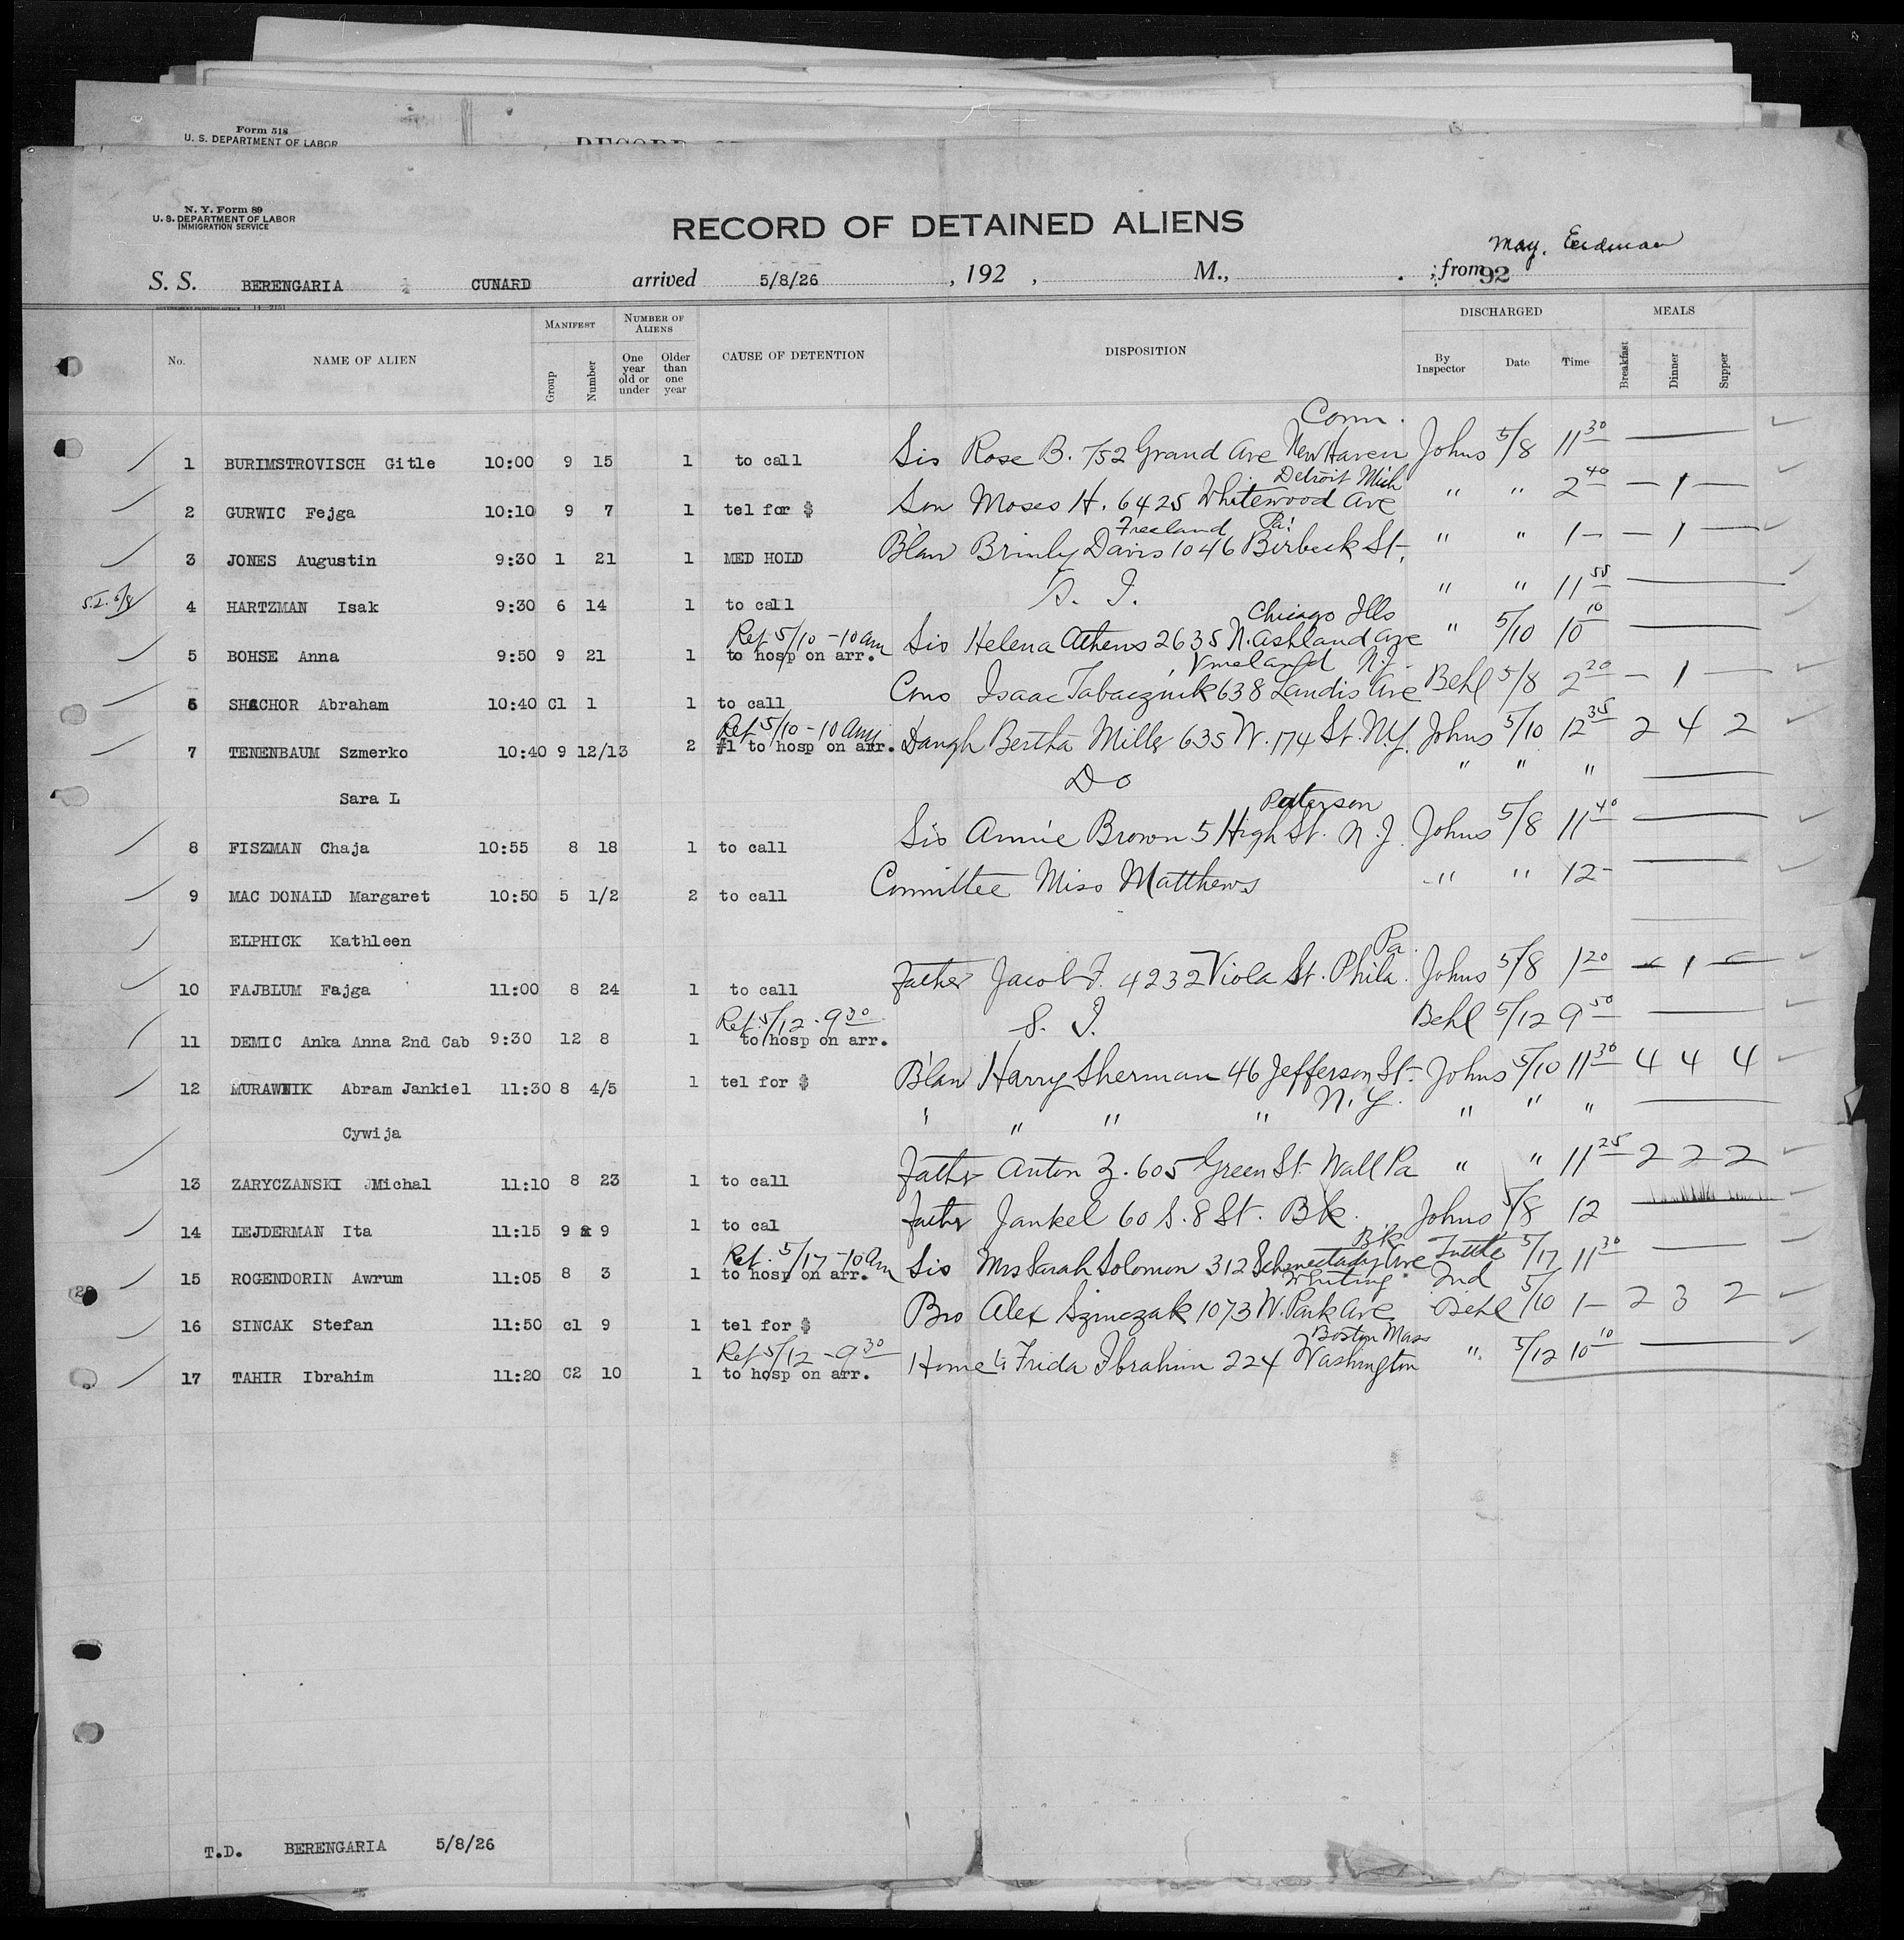 Form 518
U. S. DEPARTMENT OF LABOR
N. Y. Form 89
U. S. DEPARTMENT OF LABOR
IMMIGRATION SERVICE
RECORD OF DETAINED ALIENS
May.
S. S. BERENGARIA CUNARD arrived 5/8/26 , 192 , M., ; from 92
No. NAME OF ALIEN MANIFEST Group Number NUMBER OF ALIENS One year old or under Older than one year CAUSE OF DETENTION DISPOSITION DISCHARGED By Inspector Date Time MEALS Breakfast Dinner Supper
Conn.
1 BURIMSTROVISCH Gitle 10:00 9 15 1 to call Sis Rose B. 752 Grand Ave New Haven Johns 5/8 11 30
Detroit Mich
2 GURWIC Fejga 10:10 9 7 1 tel for $ Son Moses H. 6425 Whitewood Ave " " 2 40 — 1 —
Freeland Pa.
3 JONES Augustin 9:30 1 21 1 MED HOLD B'law Brinly Davis 1046 Birbeck St. " " 1 — — 1 —
S.I. 5/8 4 HARTZMAN Isak 9:30 6 14 1 to call S. I. " " 11 55
Ret 5/10 - 10 am Chicago Ills
5 BOHSE Anna 9:50 9 21 1 to hosp on arr. Sis Helena Athens 2635 N. Ashland Ave " 5/10 10 10
Vineland N.J.
6 SHACHOR Abraham 10:40 Cl 1 1 to call Cous Isaac Tabacznik 638 Landis Ave Behl 5/8 2 20 — 1 —
Ret 5/10 - 10 Am
7 TENENBAUM Szmerko 10:40 9 12/13 2 #1 to hosp on arr. Daugh Bertha Miller 635 W. 174 St. N.Y. Johns 5/10 12 35 2 4 2
Sara L Do " " "
Paterson
8 FISZMAN Chaja 10:55 8 18 1 to call Sis Annie Brown 5 High St. N. J. Johns 5/8 11 40
9 MAC DONALD Margaret 10:50 5 1/2 2 to call Committee Miss Matthews " " 12 -
ELPHICK Kathleen
Pa.
10 FAJBLUM Fajga 11:00 8 24 1 to call Father Jacob F. 4232 Viola St. Phila. Johns 5/8 1 20 — 1 —
Ret 5/12 - 9 30
11 DEMIC Anka Anna 2nd Cab 9:30 12 8 1 to hosp on arr. S. I. Behl 5/12 9 50
12 MURAWNIK Abram Jankiel 11:30 8 4/5 1 tel for $ B'law Harry Sherman 46 Jefferson St. Johns 5/10 11 30 4 4 4
N. Y.
Cywija " " " " " " "
13 ZARYCZANSKI Michal 11:10 8 23 1 to call Father Anton Z. 605 Green St. Wall Pa " " 11 25 2 2 2
14 LEJDERMAN Ita 11:15 9 9 1 to cal Father Jankel 60 S. 8 St. Bk. Johns 5/8 12
Ret. 5/17 - 10 Am Bk
15 ROGENDORIN Awrum 11:05 8 3 1 to hosp on arr. Sis Mrs Sarah Solomon 312 Schenectady Ave Tuttle 5/17 11 30
Whiting Ind
16 SINCAK Stefan 11:50 cl 9 1 tel for $ Bro Alex Szinczak 1073 W. Park Ave Behl 5/10 1 — 2 3 2
Ret 5/12 - 9 30 Boston Mass
17 TAHIR Ibrahim 11:20 C2 10 1 to hosp on arr. Home Frida Ibrahim 224 Washington " 5/12 10 10
T.D. BERENGARIA 5/8/26